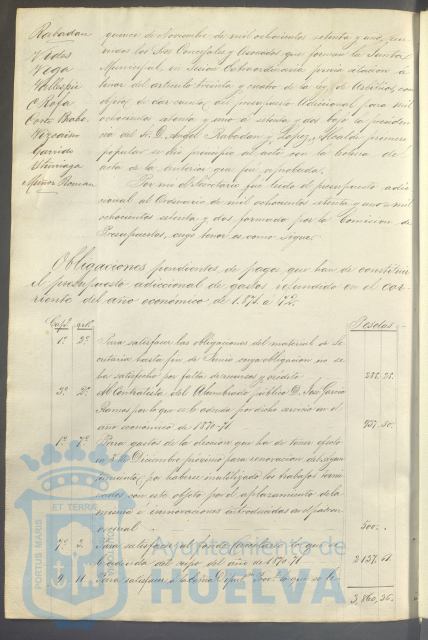 Rabadan
Vides
Vega
Garrido
Muñoz Roman
quince de Noviembre de mil ochocientos setenta y uno, reu
nidos los Sres Concejales y Asociados que forman la Junta
Municipal, en Sesion Extraordinaria previa citacion á
tenor del articulo treinta y cuatro de la ley de Arbitrios con
objeto de dar cuenta del presupuesto Adicional para mil
ochocientos setenta y uno á setenta y dos bajo la presiden
cia del Sr. D. Angel Rabadan y Lopez, Alcalde primero
popular se dio principio al acto con la lectura del
acta de la anterior que fué aprobada.
Por mi el Secretario fué leido el presupuesto adic
ional al Ordinario de mil ochocientos setenta y uno á mil
ochocientos setenta y dos formado por la Comision de
Presupuestos, cuyo tenor es como sigue.
Obligaciones pendientes de pago que han de constituir
el presupuesto adiccional de gastos refundido en el cor-
riente del año económico de 1.871. a 72.
Capº artº Pesetas
1º 2º Para satisfacer las obligaciones del material de Se
cretaria hasta fin de Junio cuya obligacion no se
ha satisfecho por falta de recursos y credito
3º 2º Al Contratista del Alumbrado público D. José Garcia
Ramos por lo que se le adeuda por dicho servicio en el
año económico de 1870-71 937.50.
1º 7º Para gastos de la eleccion que ha de tener efecto
en de Diciembre próximo para renovacion del Ayun
tamiento, por haberse inutilizado los trabajos termi
nados con este objeto por el aplazamiento de la
misma é innovaciones introducidas en el padron
500.
Para satisfacer al
del año de 1870-71 2.137,61.
9 11 Para satisfacer lo que se le
3,860,36.
PORTUS MARIS ET TERRA
Ayuntamiento de
HUELVA